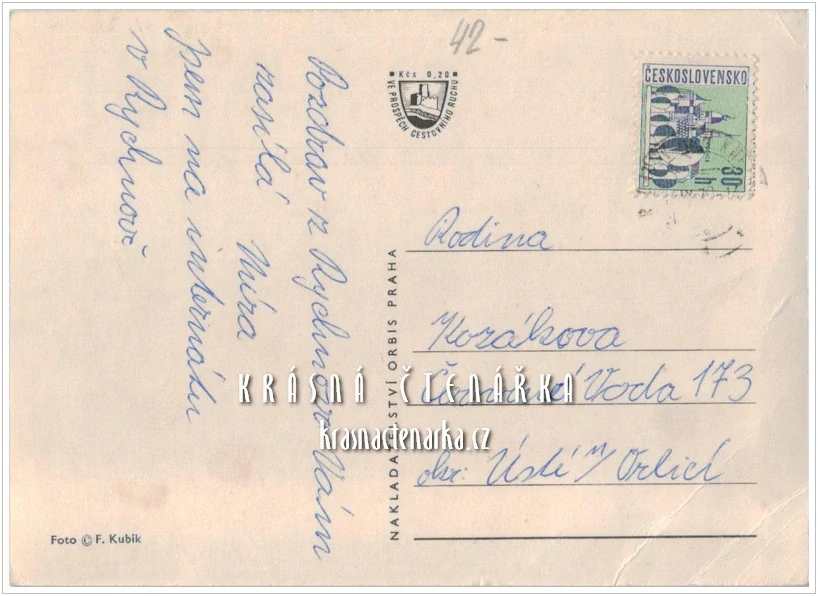 42-
Pozdrav z Rychnova Vám
zasílá Míra
Jsem na internátu
v Rychnově
Kčs 0,20
VE PROSPĚCH CESTOVNÍHO RUCHU
ČESKOSLOVENSKO
30 h
Rodina
Kozákova
Voda 173
okr: Ústí n/ Orlicí
NAKLADATELSTVÍ ORBIS PRAHA
KRÁSNÁ ČTENÁŘKA
krasnactenarka.cz
Foto © F. Kubík